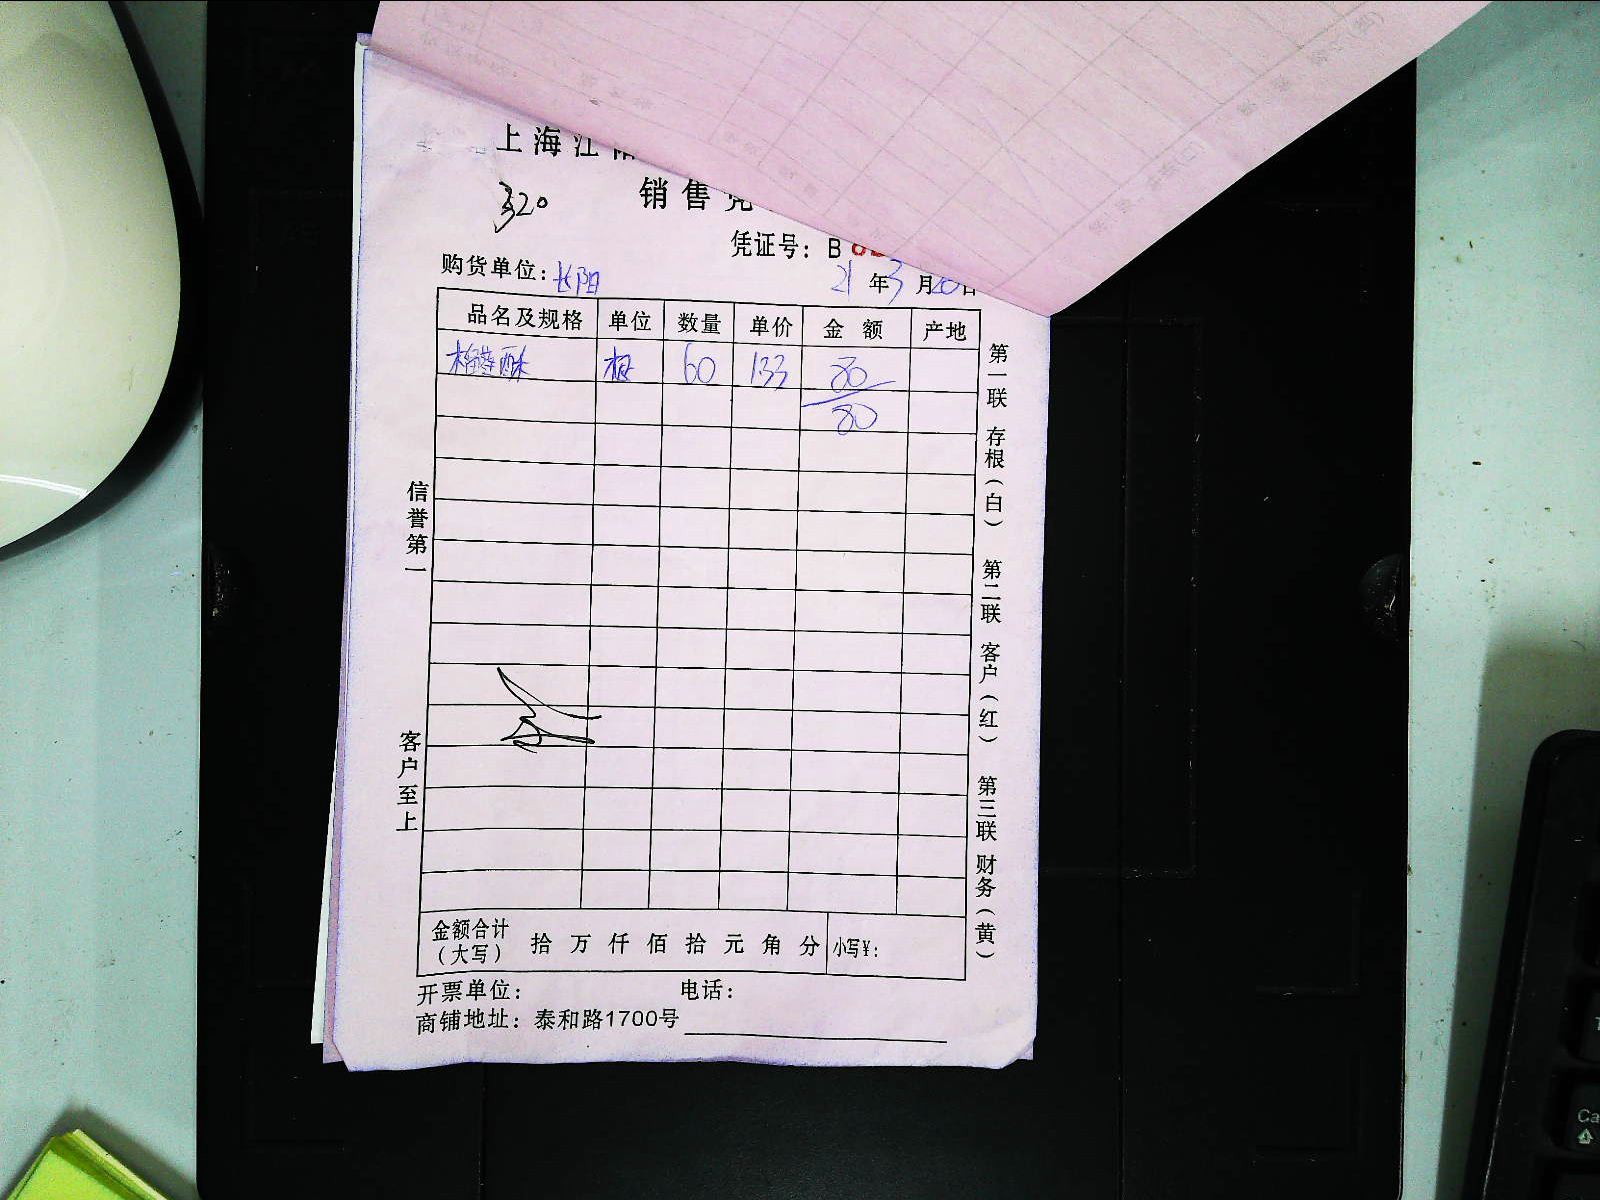 上海江
320
销售凭
凭证号：B
购货单位：长阳
21年3月20日
品名及规格 单位 数量 单价 金额 产地
榴莲酥 60 1.33 80
80
信誉第一
客户至上
第一联 存根（白） 第二联 客户（红） 第三联 财务（黄）
金额合计（大写） 拾 万 仟 佰 拾 元 角 分 小写¥：
开票单位： 电话：
商铺地址：泰和路1700号